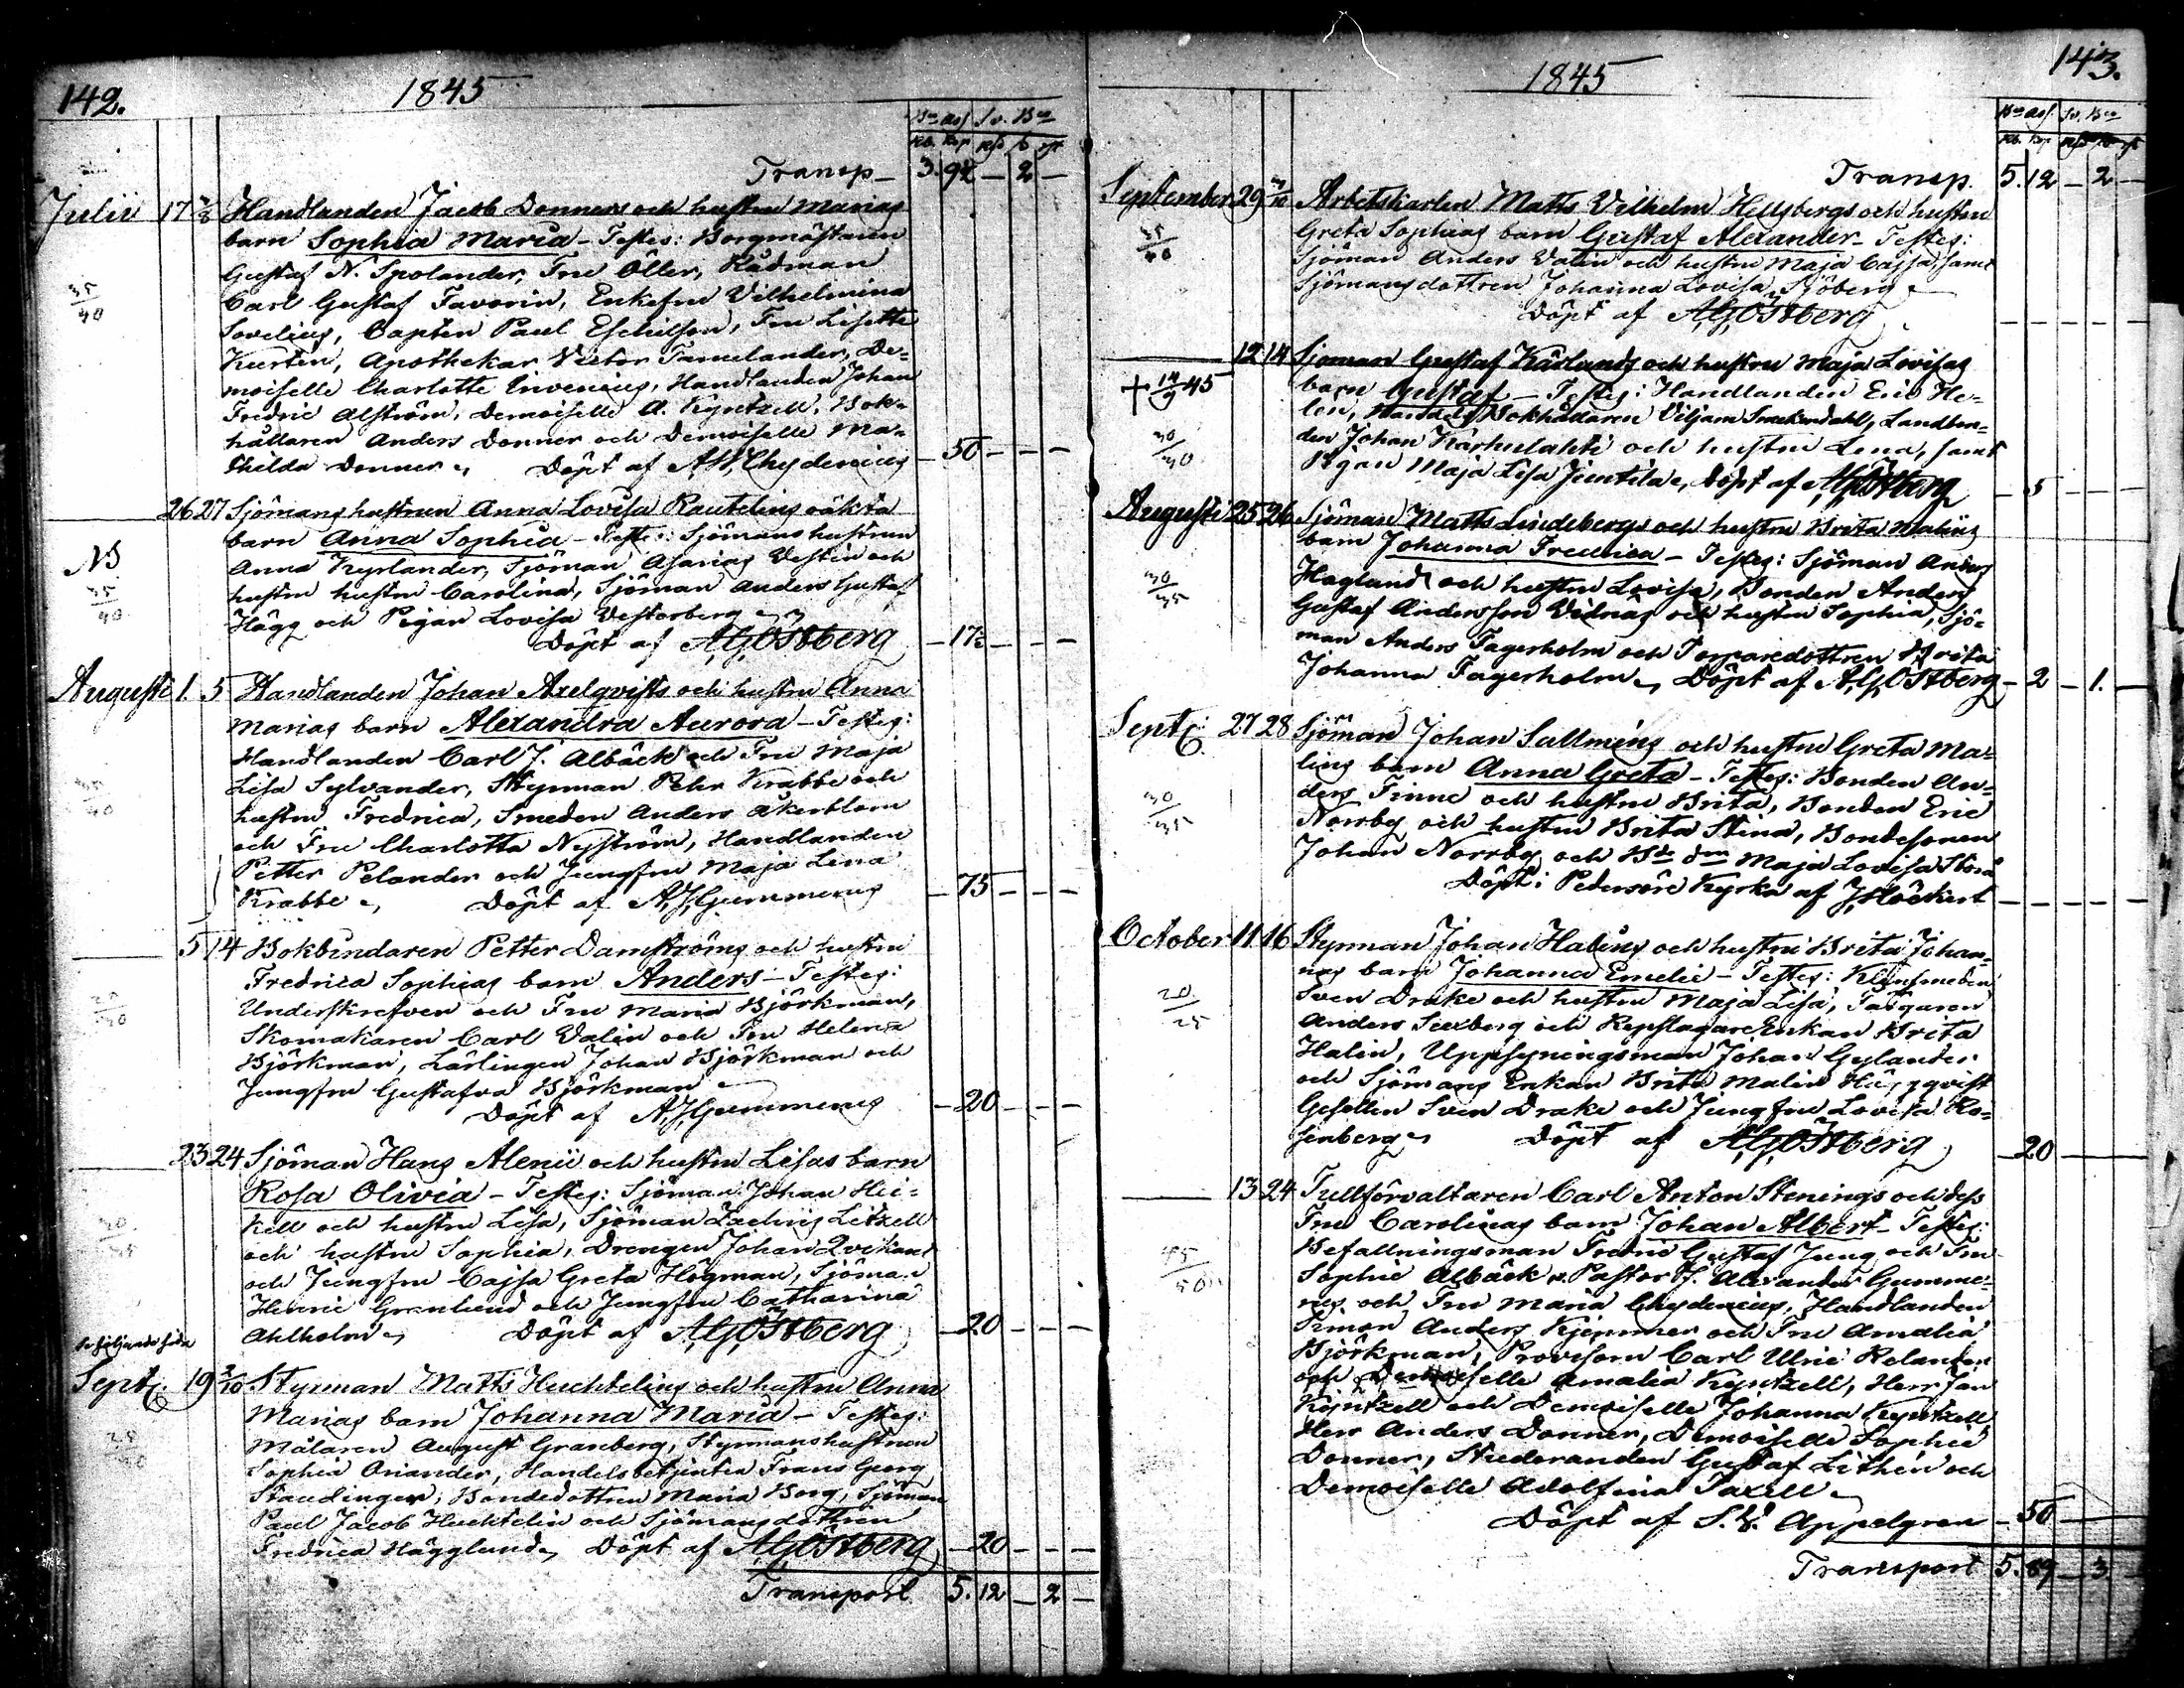 142.
1845
Bco ass. Sv. Bco
Rb. Kop Rd s. rst
Transp. — 3. 94 — 2 —
Julii 17 2/8 Handlanden Jacob Donners och hustru Marias
barn Sophia Maria — Testes: Borgmästaren
Gustaf N. Spolander, Fru Öller, Rådman
35/40
Carl Gustaf Favorin, Enkefru Vilhelmina
Sovelius, Capten Paul Eschilson, Fru Lisette
Kurtén, Apothekar Victor Tamelander, De-
moiselle Charlotte Invenius, Handlanden Johan
Fredric Alström, Demoiselle A. Kyntzell, Bok-
hållaren Anders Donner och Demoiselle Ma-
thilda Donner. Döpt af AW,Chydenius — 50 — — —
26 27 Sjömanshustrun Anna Lovisa Rautelins oäkta
barn Anna Sophia — Testes: Sjömans hustrun
NB
Anna Kyrlander, Sjöman Asarias Vestin och
35/40
hustru hustru Carolina, Sjöman Anders Gustaf
Hägg och Pigan Lovisa Vesterberg
Döpt af A,G,Östberg — 17½ — — —
Augusti 1. 5 Handlanden Johan Axelqvists och hustru Anna
Marias barn Alexandra Aurora — Testes:
Handlanden Carl J. Albäck och Fru Maja
Lisa Sylvander, Styrman Pehr Krabbe och
hustru Fredrica, Smeden Anders Åkerblom
och Fru Charlotta Nyström, Handlanden
Petter Pelander och Jungfru Maja Lena
Krabbe. Döpt af A,J,Gummerus — 75 — — —
5 14 Bokbindaren Petter Damströms och hustru
Fredrica Sophias barn Anders — Testes:
Underskrefven och Fru Maria Björkman,
Skomakaren Carl Valin och Fru Helena
Björkman, Lärlingen Johan Björkman och
Jungfru Gustafva Björkman
Döpt af A,J,Gummerus — 20 — — —
23 24 Sjöman Hans Alenii och hustru Lisas barn
Rosa Olivia — Testes: Sjöman Johan Hei-
kell och hustru Lisa, Sjöman Zachris Litzell
och hustru Sophia, Drengen Johan Qvikant
och Jungfru Cajsa Greta Högman, Sjöman
Henric Grönlund och Jungfru Catharina
Ahlholm. Döpt af A,G,Östberg — 20 — — —
Se följande sida
Septr. 19 2/10 Styrman Matts Huchtelins och hustru Anna
Marias barn Johanna Maria — Testes:
Målaren August Granberg, Styrmanshustrun
Sophia Oriander, Handelsbetjenten Frans Georg
Staudinger, Bondedottren Maria Borg, Sjöman
Paul Jacob Huchtelin och Sjömansdottren
Fredrica Hägglund. Döpt af A,G,Östberg — 20 — — —
Transport 5. 12 — 2 —
143.
1845
Bco ass. Sv. Bco
Rb. Kop Rd s. rst
Transp. 5. 12 — 2 —
September 29 Arbetskarlen Matts Vilhelm Hellsbergs och hustru
Greta Sophias barn Gustaf Alexander — Testes:
35/40
Sjöman Anders Valin och hustru Maja Cajsa, samt
Sjömansdottren Johanna Lovisa Sjöberg
Döpt af A,G,Östberg — — — —
12 14 Sjöman Gustaf Karlunds och hustru Maja Lovisas
† 14/9 45
barn Gustaf — Testes: Handlanden Eric He-
lén, Bokhållaren Viljam Smekerdahl, Landbon-
30/30
den Johan Karhulahti och hustru Lena, samt
Pigan Maja Lisa Juntila. Döpt af A,G,Östberg — 5 — — —
Augusti 25 26 Sjöman Matts Lindebergs och hustru Brita Malins
barn Johanna Fredrica — Testes: Sjöman Anders
30/35
Haglund och hustru Lovisa, Bonden Anders
Gustaf Andersson Vidnäs och hustru Sophia, Sjö-
man Anders Fagerholm och Torparedottren Brita
Johanna Fagerholm. Döpt af A,G,Östberg — 2 — 1. —
Septr. 27 28 Sjöman Johan Sallmens och hustru Greta Ma-
lins barn Anna Greta — Testes: Bonden An-
30/35
ders Finne och hustru Brita, Bonden Eric
Norrby och hustru Brita Stina, Bondesonen
Johan Norrby och Bde dm Maja Lovisa Storå
Döpt i Pedersöre Kyrka af J,Höckert — — — —
October 11 16 Styrman Johan Halins och hustru Brita Johan-
nas barn Johanna Emelie — Testes: Klensmeden
20/25
Sven Drake och hustru Maja Lisa, Färgaren
Anders Saxberg och Repslagare Enkan Brita
Halin, Uppsyningsman Johan Gylander
och Sjömans Enkan Brita Malin Häggqvist
Gesellen Sven Drake och Jungfru Lovisa Ro-
senberg. Döpt af A,G,Östberg — 20 —
13 24 Tullförvaltaren Carl Anton Stenings och dess
Fru Carolinas barn Johan Albert — Testes:
45/50
Befallningsman Fredric Gustaf Jung och Fru
Sophie Albäck, v. Pastor J. Alexander Gumme-
rus och Fru Maria Chydenius, Handlanden
Simon Anders Kjemmer och Fru Amalia
Björkman, Provisorn Carl Ulric Relander
och Demoiselle Amalia Kyntzell, Herr Jan
Kyntzell och Demoiselle Johanna Kyntzell,
Herr Anders Donner, Demoiselle Sophie
Donner, Studeranden Gustaf Lithén och
Demoiselle Adolfina Taxell
Döpt af S. V. Appelgren — 50 —
Transport 5. 89 — 3 —